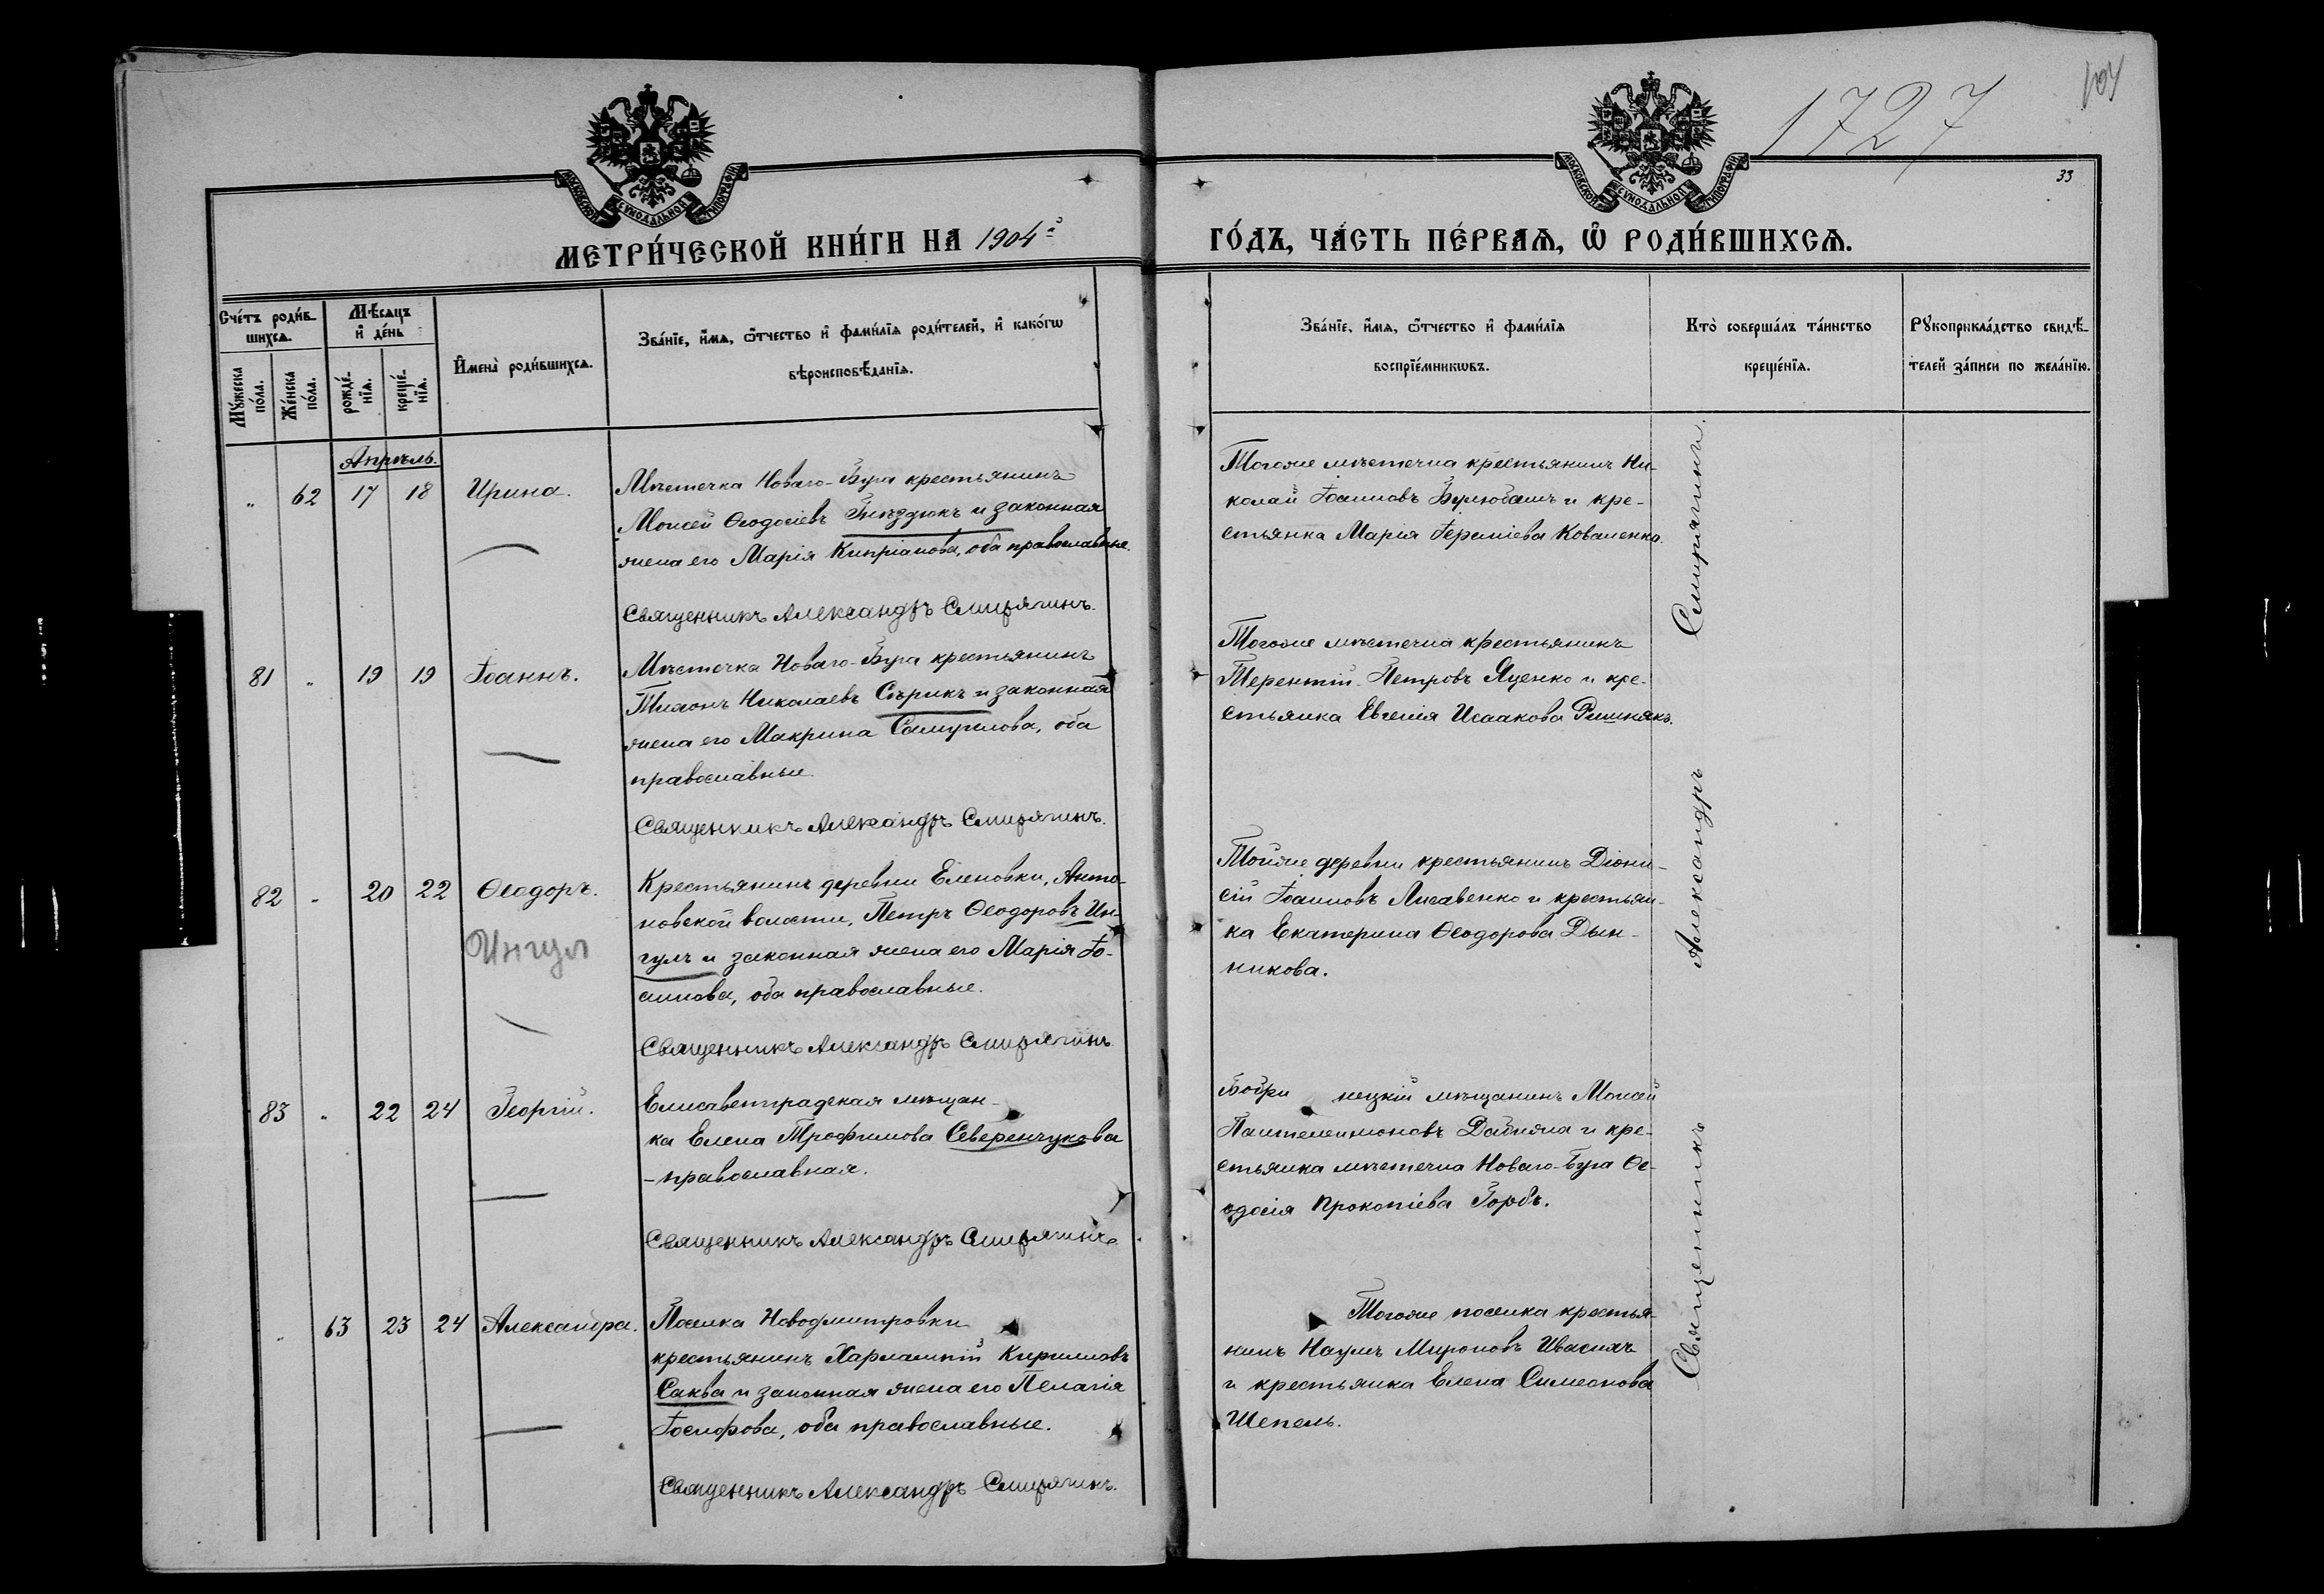 1727
33
МОСКОВСКОЙ СѴНОДАЛЬНОЙ ТИПОГРАФІИ
МОСКОВСКОЙ СѴНОДАЛЬНОЙ ТИПОГРАФІИ
МЕТРИ́ЧЕСКОЙ КНИ́ГИ НА 1904й
ГО́ДЪ, ЧА́СТЬ ПЕ́РВАѦ, Ѿ РОДИ́ВШИХСѦ.
Сче́тъ роди́в-
шихсѧ.
Мꙋ́жеска по́ла.
Же́нска по́ла.
Мѣ́сѧцъ
и҆ де́нь
рожде́-
нїѧ.
креще́-
нїѧ.
И҆мена̀ роди́вшихсѧ.
Зва́нїе, и҆́мѧ, ѻ҆́тчество и҆ фами́лїѧ роди́телей, и҆ како́гѡ
вѣроисповѣ́данїѧ.
Зва́нїе, и҆́мѧ, ѻ҆́тчество и҆ фами́лїѧ
воспрїе́мникѡвъ.
Кто̀ соверша́лъ та́инство
креще́нїѧ.
Рꙋкоприкла́дство свидѣ́-
телей за́писи по жела́нїю.
Апрѣль.
" 62 17 18 Ирина.
Мѣстечка Новаго-Буга крестьянинъ
Моисей Ѳеодосіевъ Гнѣздюкъ и законная
жена его Марія Кипріанова, оба православные.
Священникъ Александръ Смирягинъ.
Тогоже мѣстечка крестьянинъ Ни-
колай Іоанновъ Булюбашъ и кре-
стьянка Марія Іереміева Коваленко.
81 " 19 19 Іоаннъ.
Мѣстечка Новаго-Буга крестьянинъ
Тимонъ Николаевъ Сѣрикъ и законная
жена его Макрина Самуилова, оба
православные
Священникъ Александръ Смирягинъ.
Тогоже мѣстечка крестьянинъ
Терентій Петровъ Яценко и кре-
стьянка Евгенія Исаакова Ришнякъ.
82 " 20 22 Ѳеодоръ.
Ингул
Крестьянинъ деревни Еленовки, Анто-
новской волости, Петръ Ѳеодоровъ Ин-
гулъ и законная жена его Марія Іо-
аннова, оба православные.
Священникъ Александръ Смирягинъ
Тойже деревни крестьянинъ Діони-
сій Іоанновъ Лисавенко и крестьян-
ка Екатерина Ѳеодорова Дын-
никова.
83 " 22 24 Георгій.
Елисаветградская мѣщан-
ка Елена Трофимова Северенчукова
-православная.
Священникъ Александръ Смирягинъ
Бобри нецкій мѣщанинъ Моисей
Пантелеимоновъ Дабижа и кре-
стьянка мѣстечка Новаго-Буга Ѳе-
одосія Прокопіева Горбъ.
" 63 23 24 Александра.
Поселка Новодмитровки
крестьянинъ Харлампій Кирилловъ
Саква и законная жена его Пелагія
Іосифова, оба православные.
Священникъ Александръ Смирягинъ.
Тогоже поселка крестья-
нинъ Наумъ Мироновъ Ивасихъ
и крестьянка Елена Симеонова
Шепель.
Священникъ Александръ Смирягинъ.